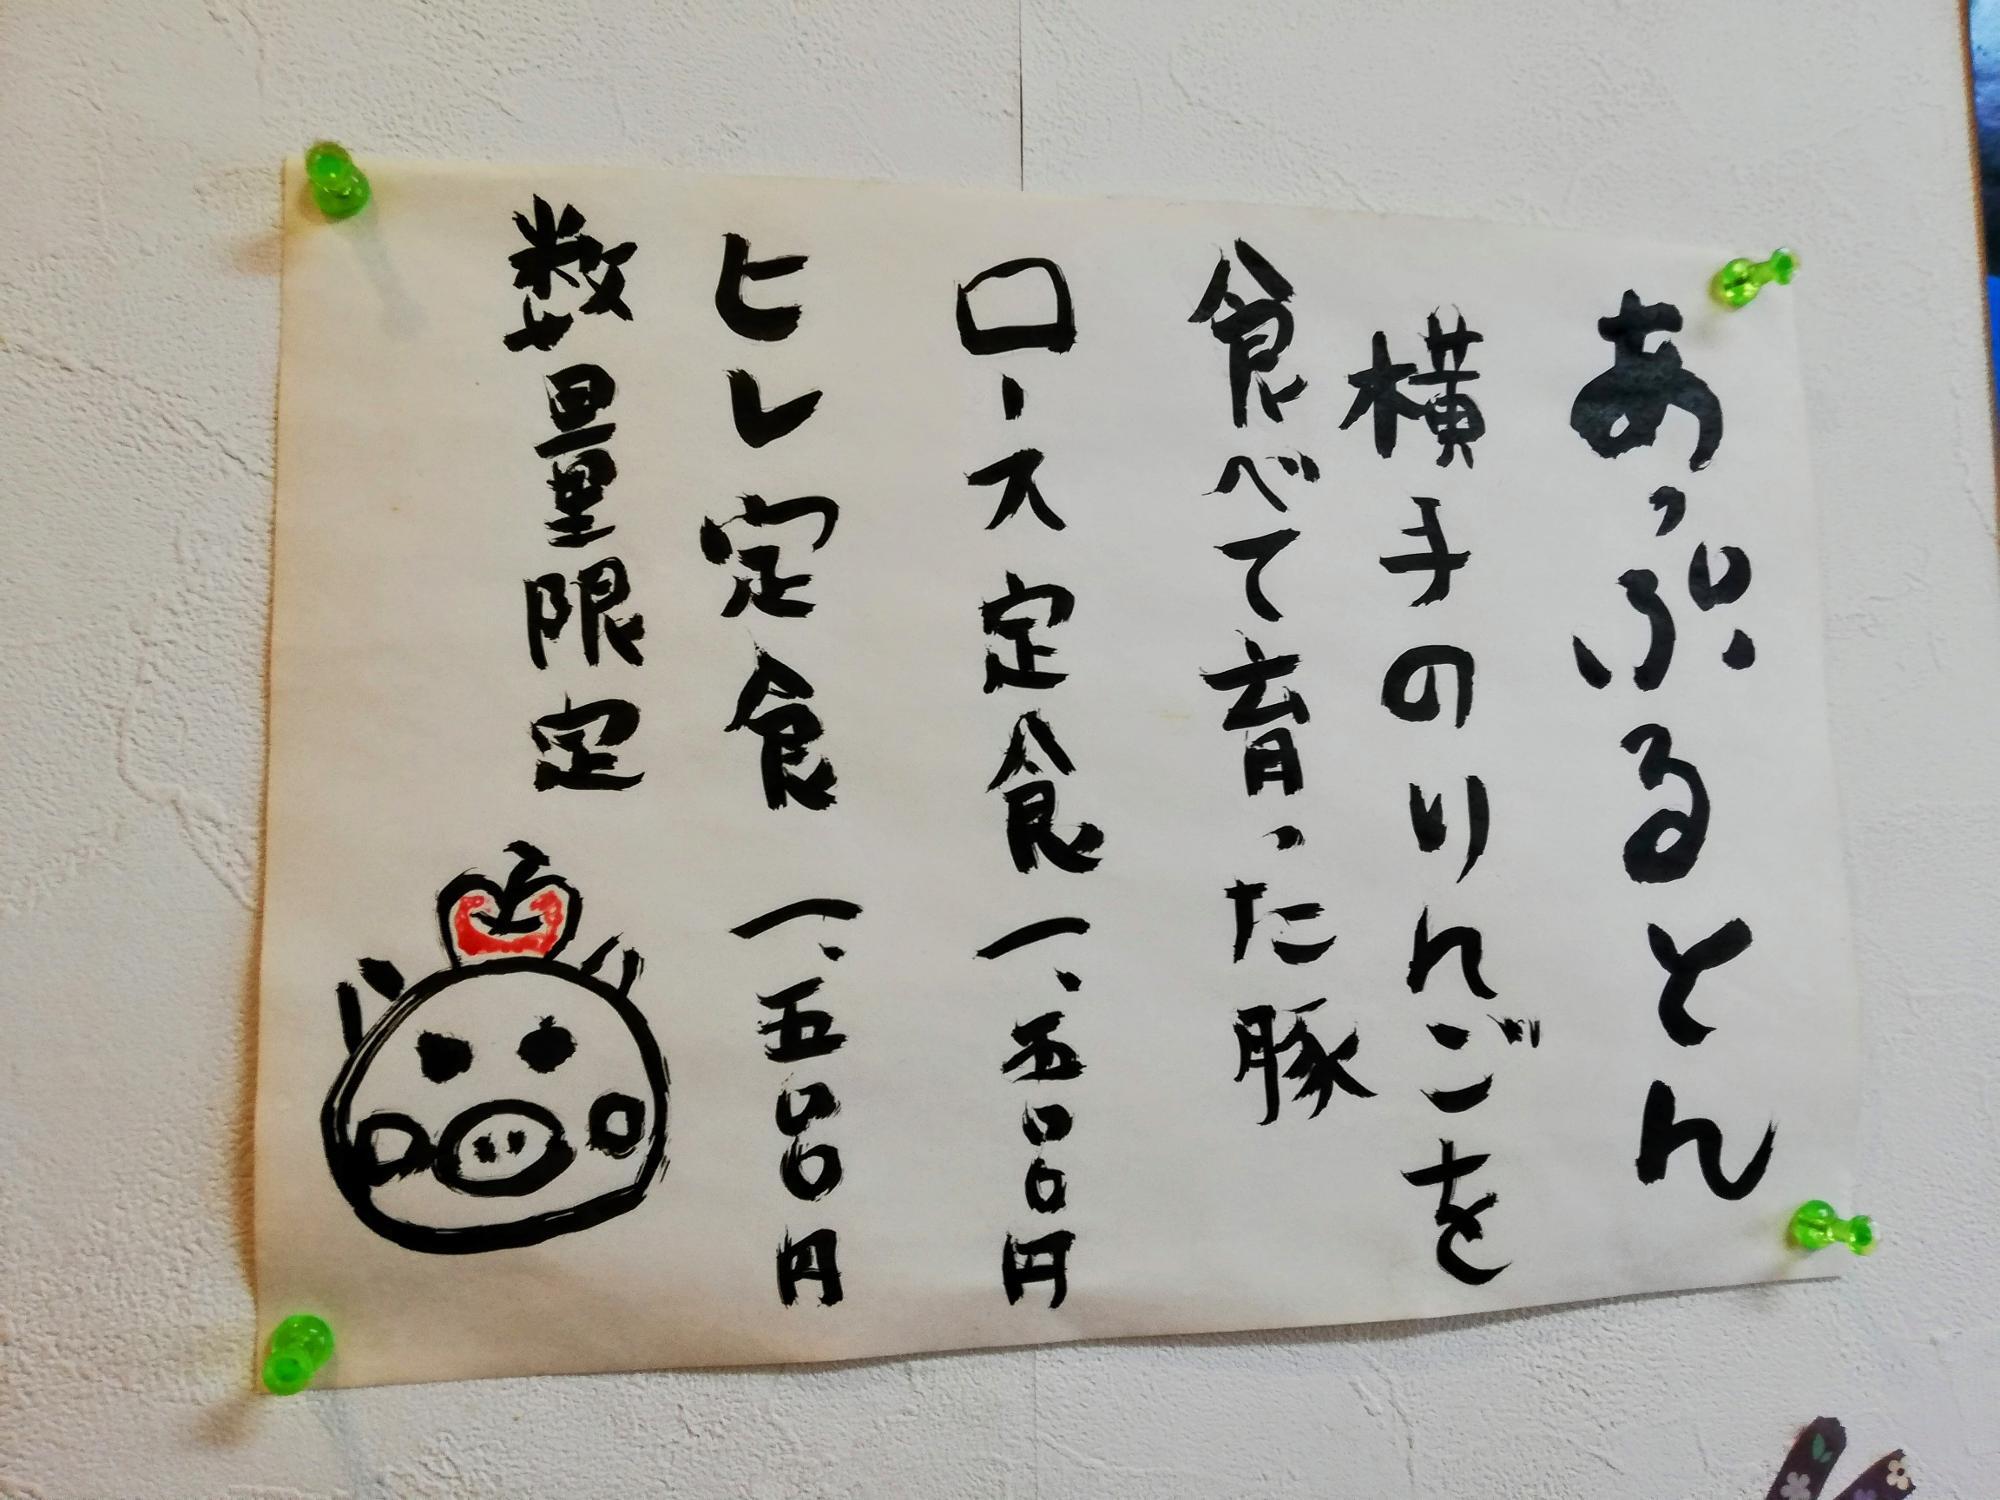 あっぷるとん
横手のりんごを
食べて育った豚
ロース定食 一、五〇〇円
ヒレ定食 一、五〇〇円
数量限定